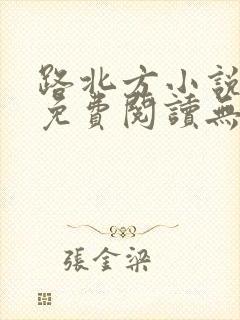 路北方小說
免費閱讀無
張金梁